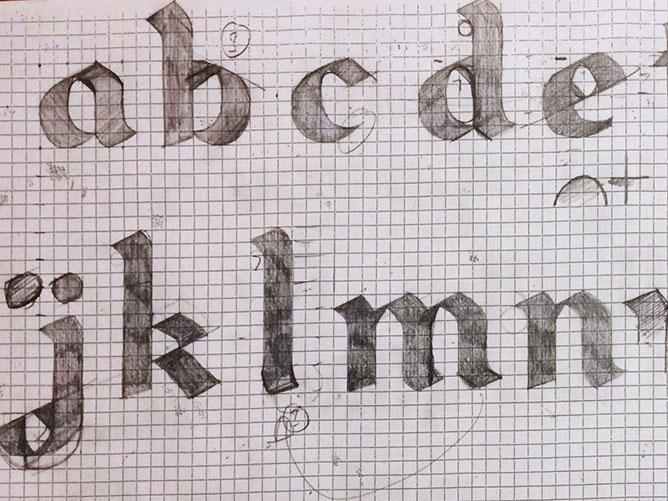 a b c d e
j k l m n